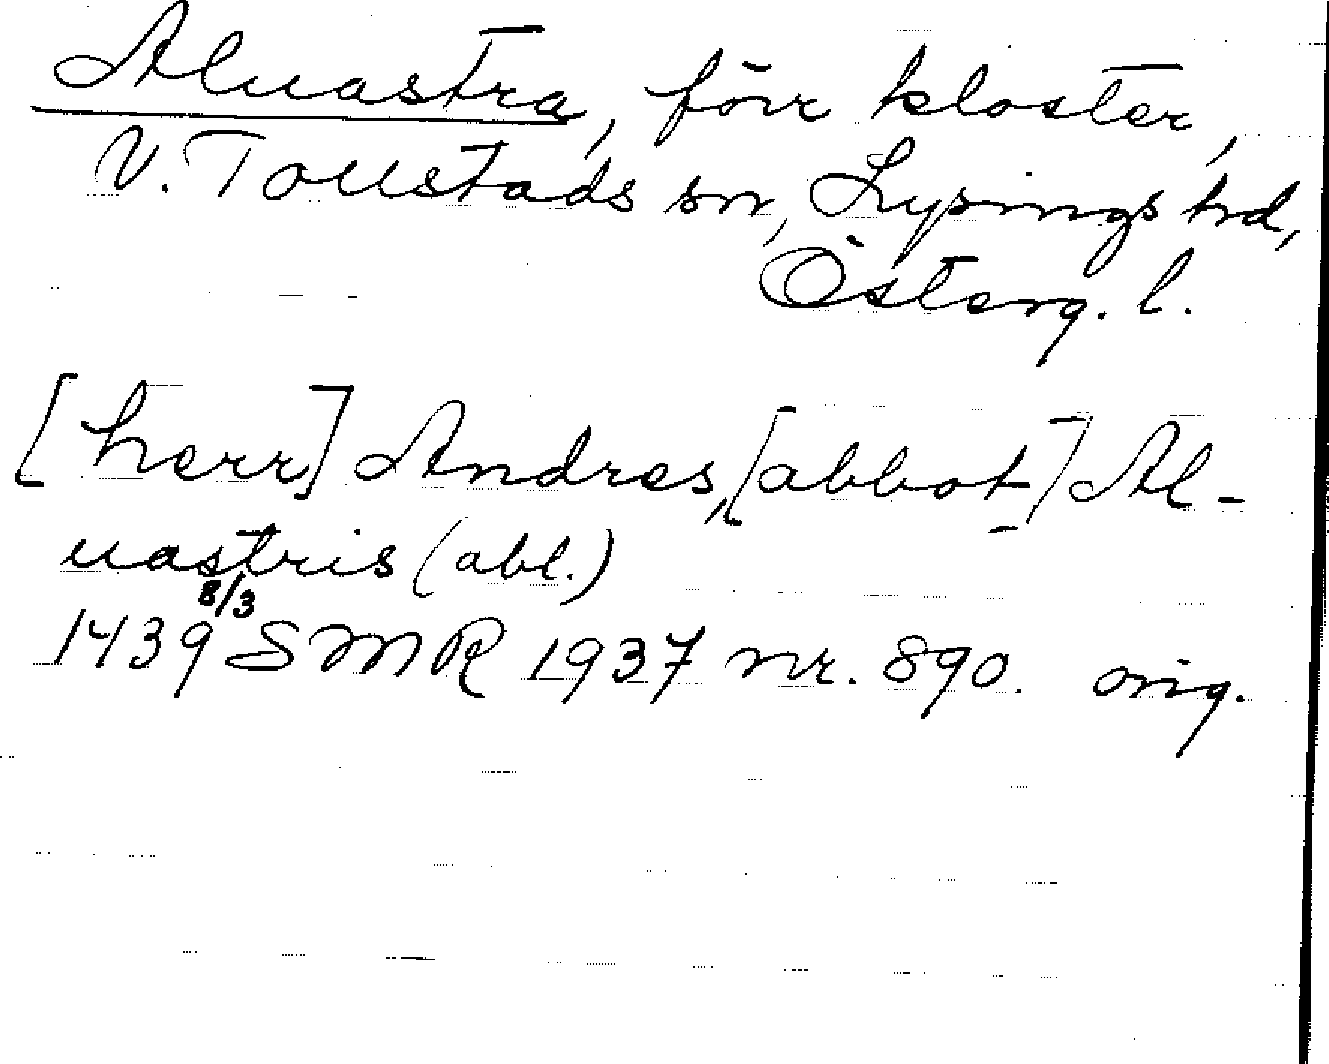 Aluastra, förr kloster,
V. Tollstads sn, Lysings hd,
Österg. l.
[herr] Andres, [abbot] Al-
uastris (abl.)
1439 8/3 SMR 1937 nr. 890. orig.